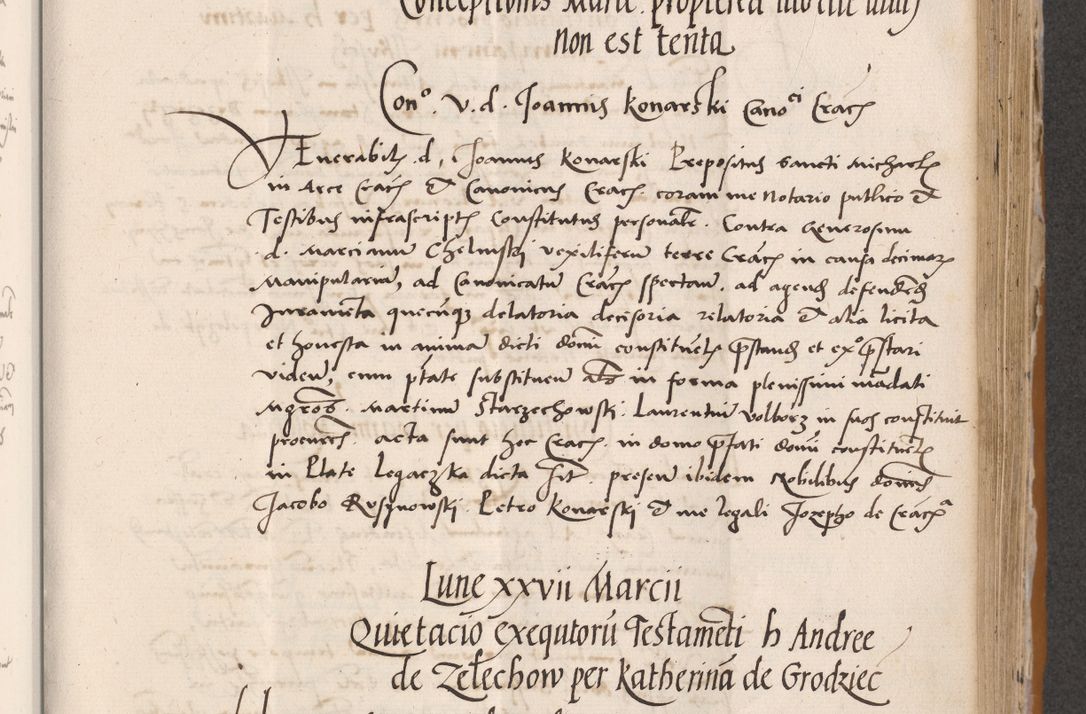 Conceptionis Marie propterea
non est tenta
Con° . v. d. Joannis Konarski Cano ci Crac
Venerabilis d, Joannes Konarski Prepositus Sancti Michaelis
in Arce Crac & Canonicus Crac. coram me Notario publico &
Testibus infrascriptis Constitutus personalr. Contra Generosum
d. Marcianum Chelmski vexiliferum terre Crac in causa decimar
Manipularium, ad Canonicatum Crac spectan, ad agend defendend
Juramenta quecunq delatoria decisoria relatoria & alia licita
et honesta in animam dicti domini constituentis prestand et ex° prestari
videndum, cum ptate substituen in forma plenissimi mandati
Mgros. Martinum Starzechowski. Laurentium Volborz in suos constituit
procures. acta sunt hoc Crac. in domo prefati domini constituentis
in Plate Legaczka dicta sit. presen ibidem Nobilibus dominis
Jacobo Rusynowski. Petro Konarski & me legali Jozepho de Crac
Lune xxvii Marcii
Quietacio exequtorū Testamēti h Andree
de Zelechow per Katherinā de Grodziec